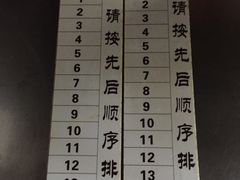 1
2
3
4
5
6
7
8
9
10
11
12
请按先后顺序排
2
3
4
5
6
7
8
9
10
11
12
13
请按先后顺序排